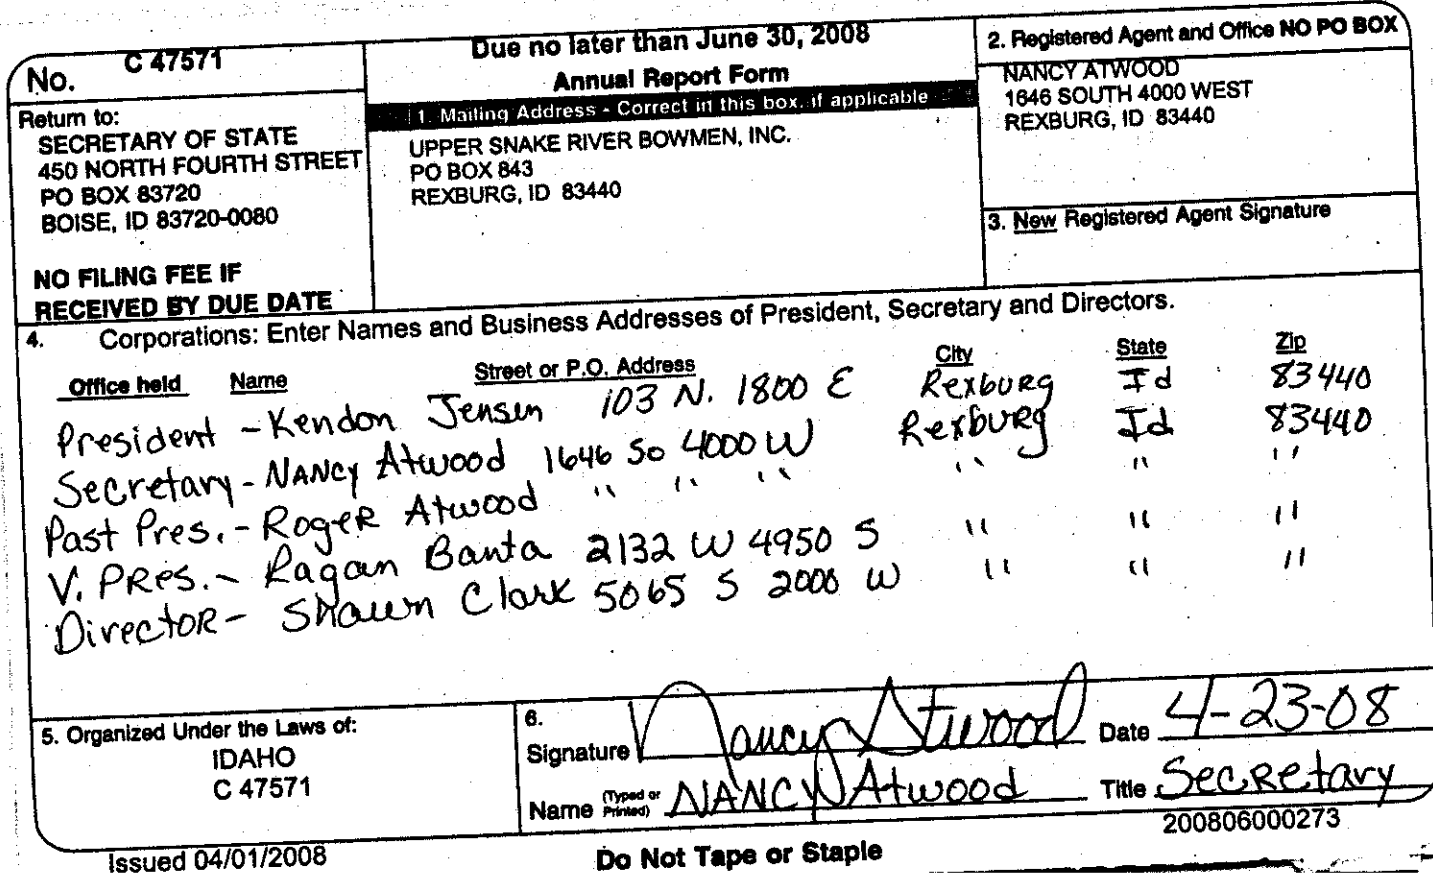 No. C 47571
Return to:
SECRETARY OF STATE
450 NORTH FOURTH STREET
PO BOX 83720
BOISE, ID 83720-0080
NO FILING FEE IF
RECEIVED BY DUE DATE
Due no later than June 30, 2008
Annual Report Form
1. Mailing Address - Correct in this box, if applicable
UPPER SNAKE RIVER BOWMEN, INC.
PO BOX 843
REXBURG, ID 83440
2. Registered Agent and Office NO PO BOX
NANCY ATWOOD
1646 SOUTH 4000 WEST
REXBURG, ID 83440
3. New Registered Agent Signature
4. Corporations: Enter Names and Business Addresses of President, Secretary and Directors.
Office held Name Street or P.O. Address City State Zip
President - Kendon Jensen 103 N. 1800 E Rexburg Id 83440
Secretary - NANCY Atwood 1646 So 4000 W Rexburg Id 83440
Past Pres. - RogeR Atwood " " " " " "
V. PRes. - Ragan Banta 2132 W 4950 S " " "
DirectoR - Shawn Clark 5065 S 2000 W " " "
5. Organized Under the Laws of:
IDAHO
C 47571
6.
Signature Nancy Atwood Date 4-23-08
Name (Typed or Printed) NANCY Atwood Title SecRetary
200806000273
Issued 04/01/2008
Do Not Tape or Staple